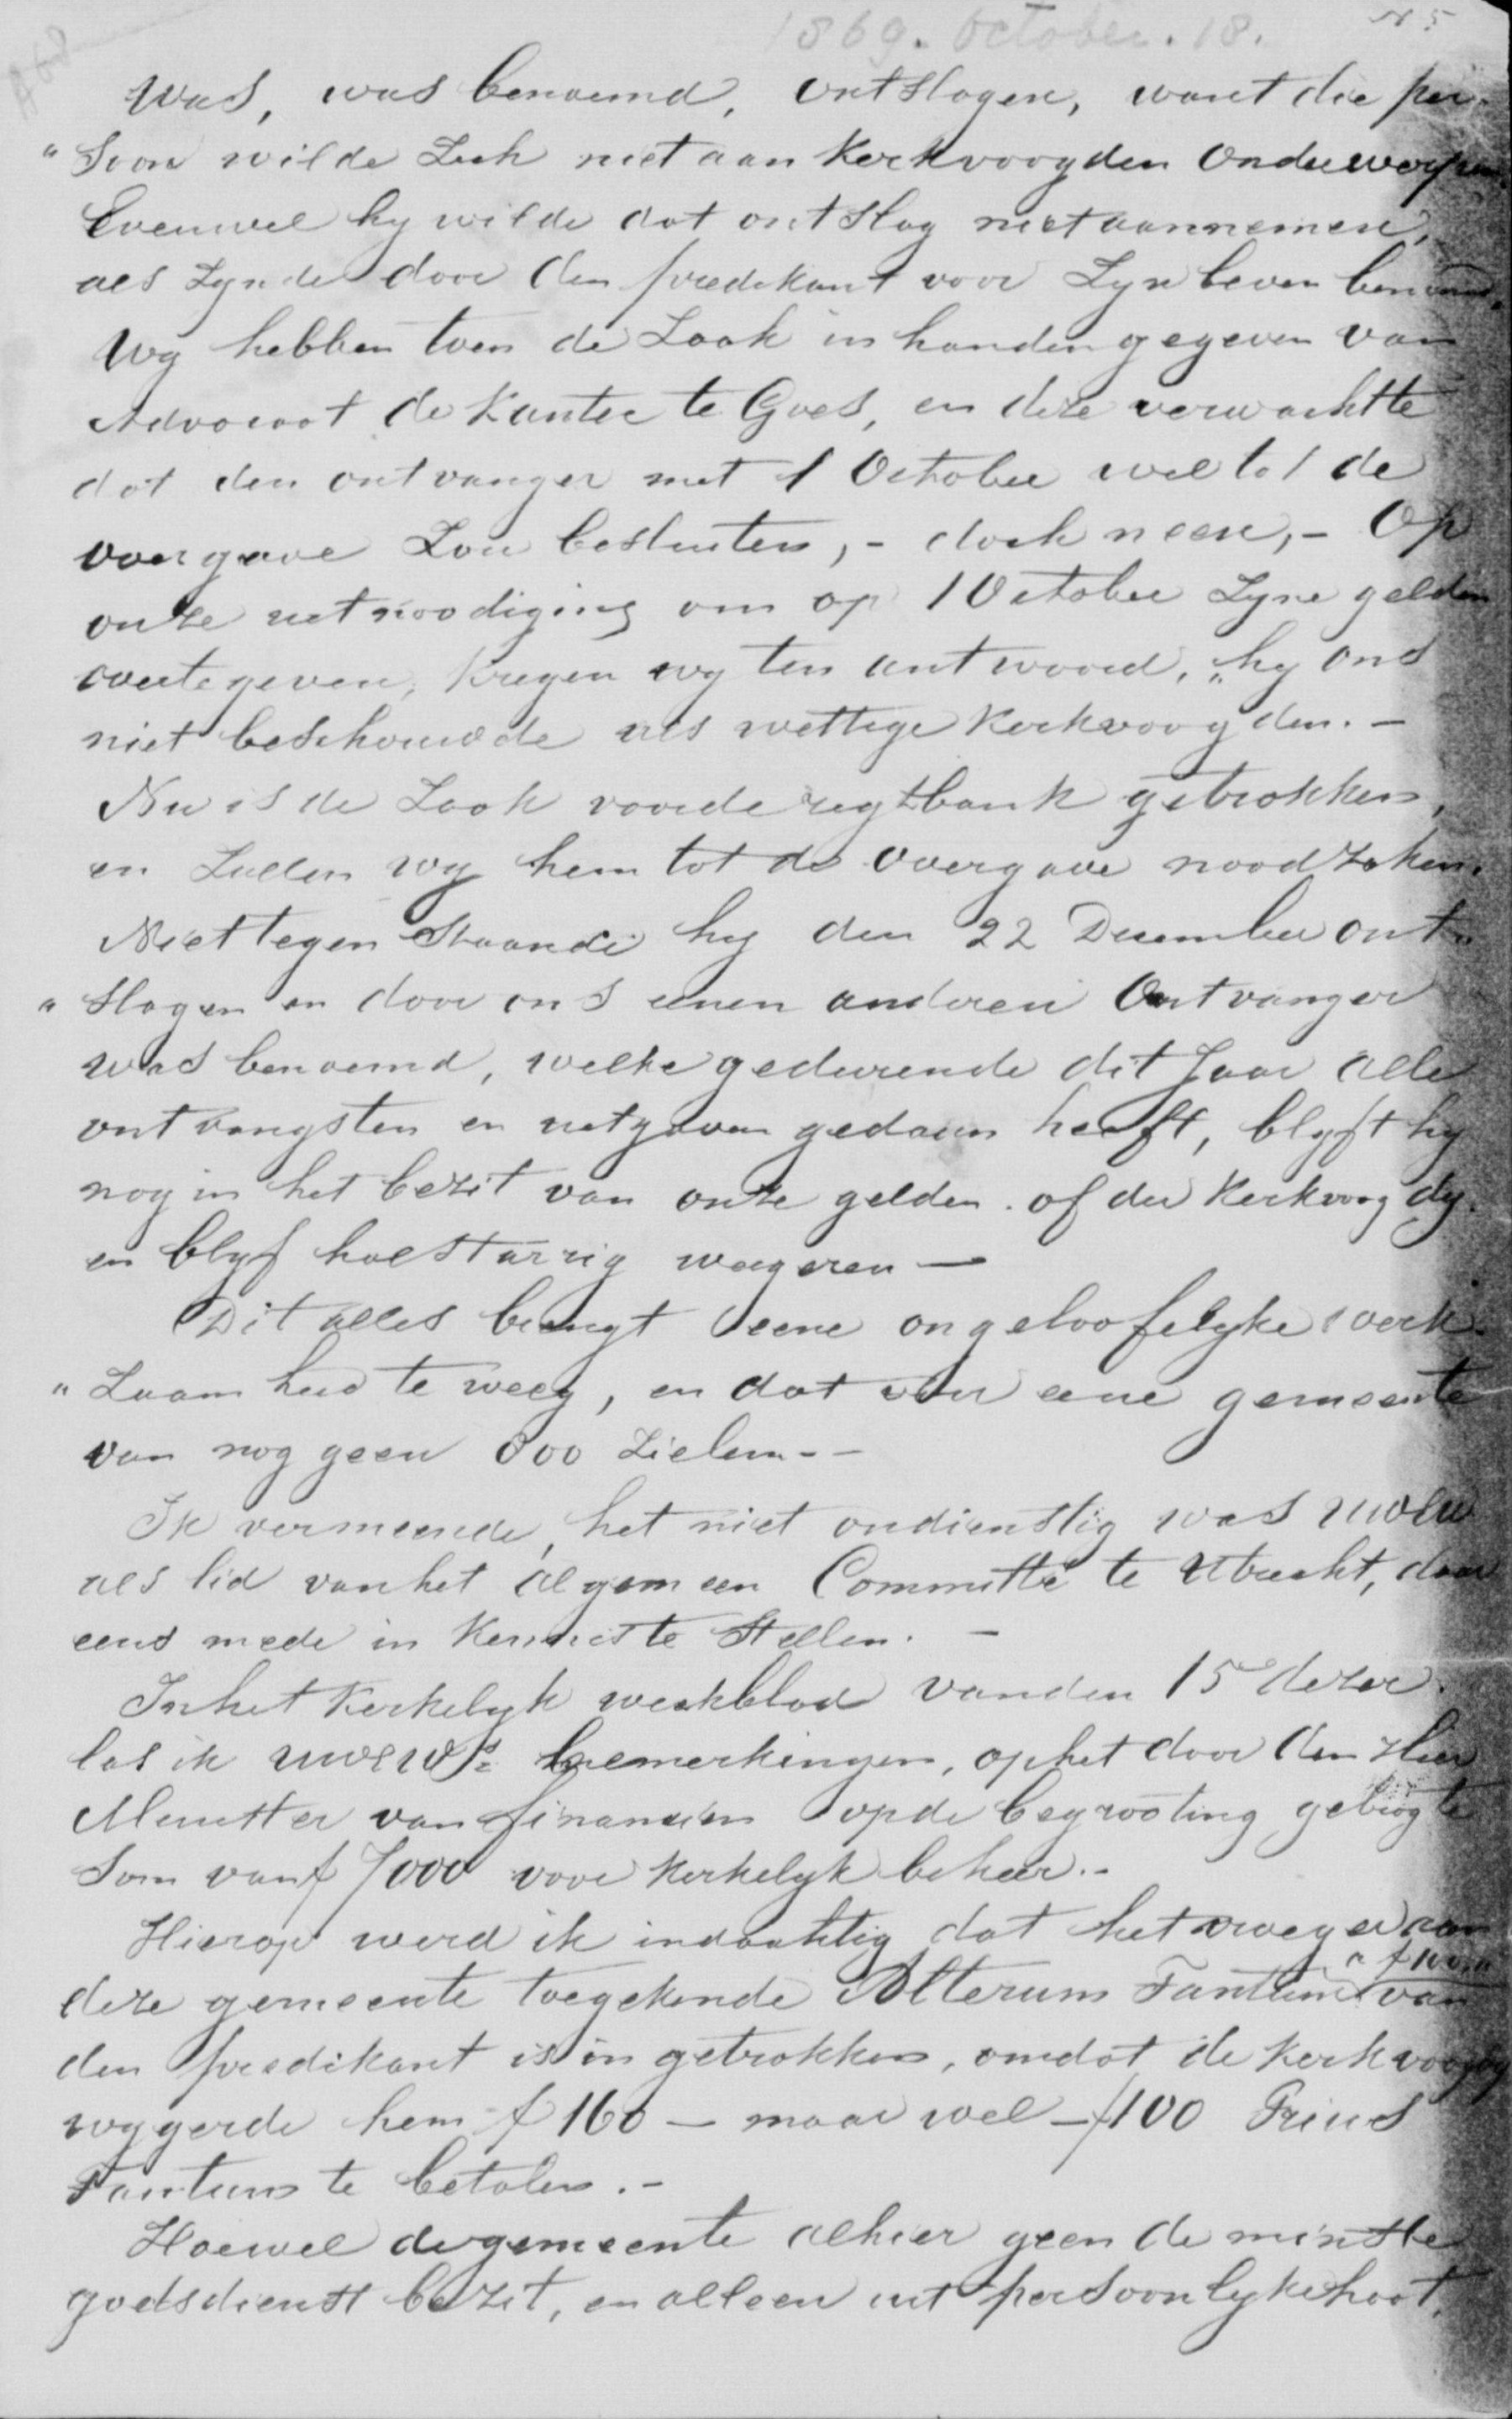 1869. October. 18. N 5
A68
was, was benoemd, ontslagen, want die per-
"soon wilde zich niet aan Kerkvoogden onderwerpen
Evenwel hy wilde dat ontslag niet aannemen,
als zynde door den predikant voor zyn leven benoemd.
Wy hebben toen de Zaak in handen gegeven van
Advocaat de Kanter te Goes, en deze verwachtte
dat den ontvanger met 1 October wel tot de
overgave zou besluiten, - doch neen, - Op
onze uitnoodiging om op 1 October zyne gelden
overtegeven, kregen wy ten antwoord, "hy ons
niet beschouwde als wettige Kerkvoogden. -
Nu is de Zaak voor de regtbank getrokken,
en zullen wy hem tot de overgave noodzaken.
Niettegenstaande hy den 22 December ont-
"slagen en door ons eenen anderen Ontvanger
was benoemd, welke gedurende dit Jaar alle
ontvangsten en uitgaven gedaan heeft, blyft hy
nog in het bezit van onze gelden. of der Kerkvoogdy.
en blyf halstarrig weigeren —
Dit alles brengt eene ongeloofelyke werk-
"zaamheid te weeg, en dat voor eene gemeente
van nog geen 800 Zielen. -
Ik vermeende, het niet ondienstig was UwEw
als lid van het algemeen Committé te Utrecht, daar
eens mede in Kennis te stellen. -
In het Kerkelyk weekblad van den 15 dezer
las ik UwEws bemerkingen, op het door den Heer
Minister van financien op de begrooting gebragte
Som van f 7000 voor Kerkelyk beheer. -
Hierop werd ik indachtig dat het vroeger aan
deze gemeente toegekende Alterum Tantum a f 100.- van
den predikant is ingetrokken, omdat de Kerkvoogdy
wygerde hem f 160 — maar wel — f 100 Prius
Tantum te betalen. -
Hoewel de gemeente alhier geen de minste
godsdienst bezit, en alleen uit persoonlyke haat,